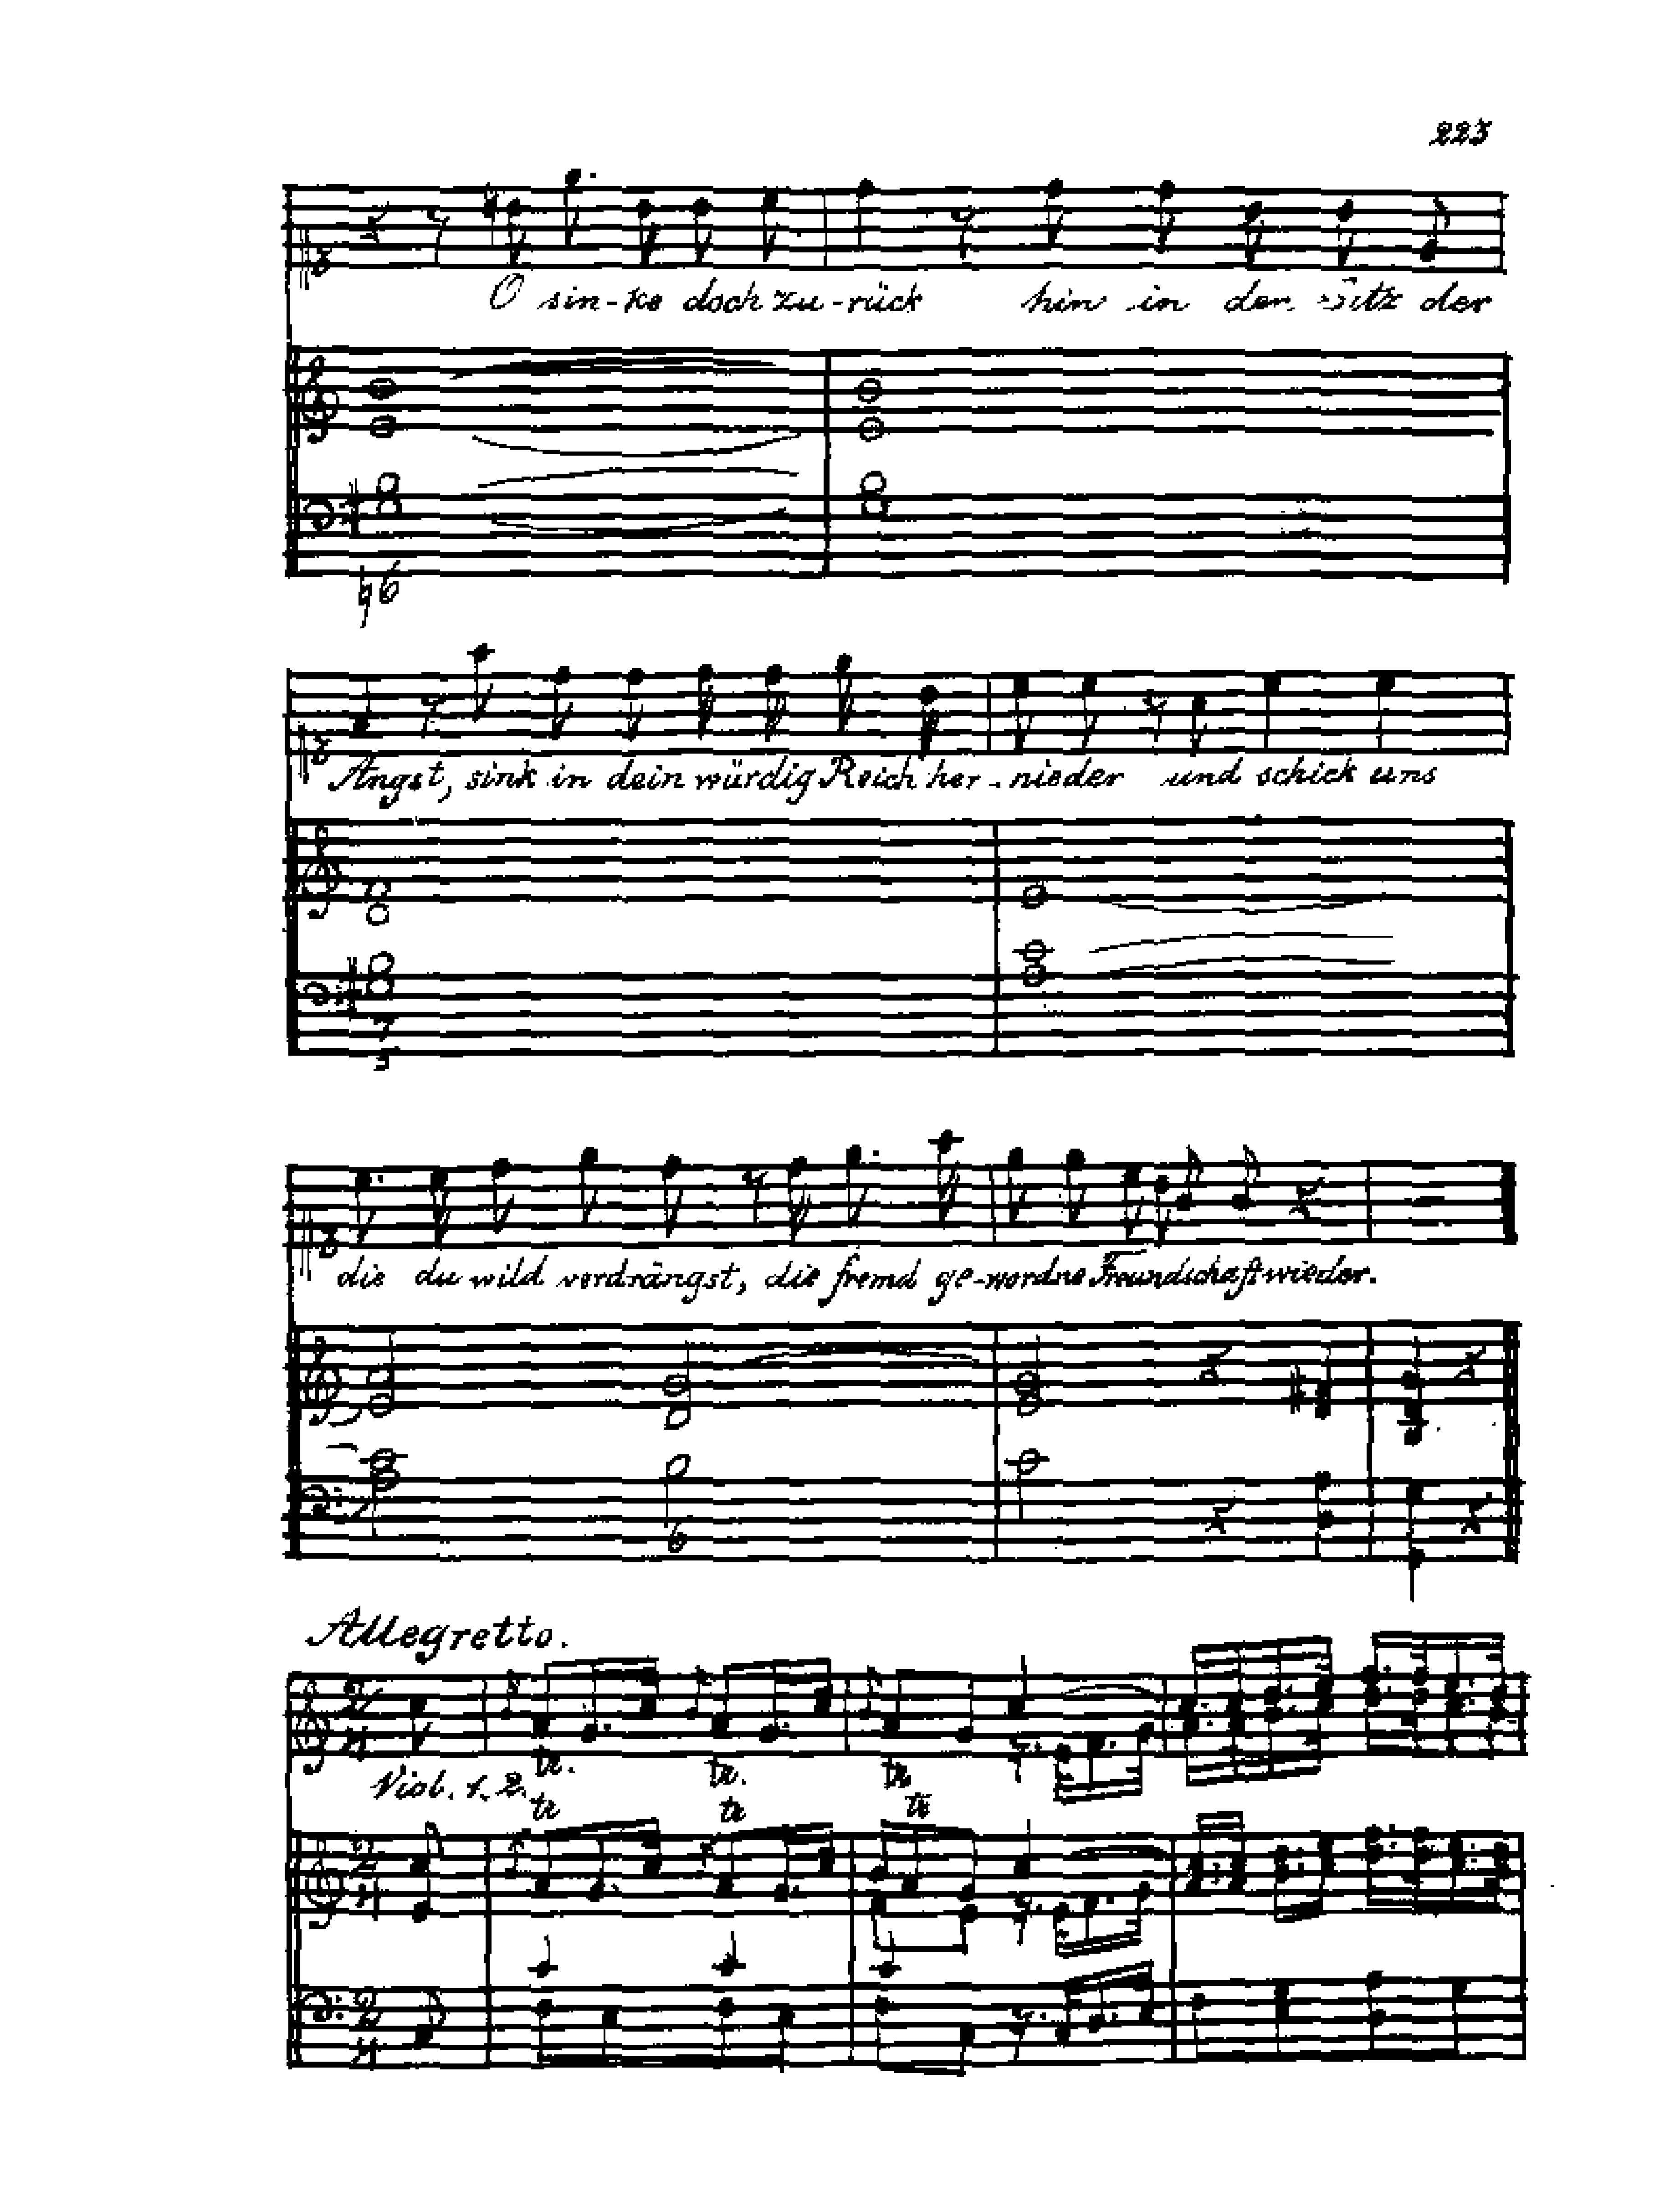 223
O sin-ke doch zu-rück hin in den Sitz der
♮6
Angst, sink in dein würdig Reich her-nieder und schick uns
7
5
die du wild verdrängst, die fremd ge-wordne Freundschaft wieder.
6
Allegretto.
2
4
tr. tr. tr
Viol. 1. 2.
tr tr tr
2
4
2
4